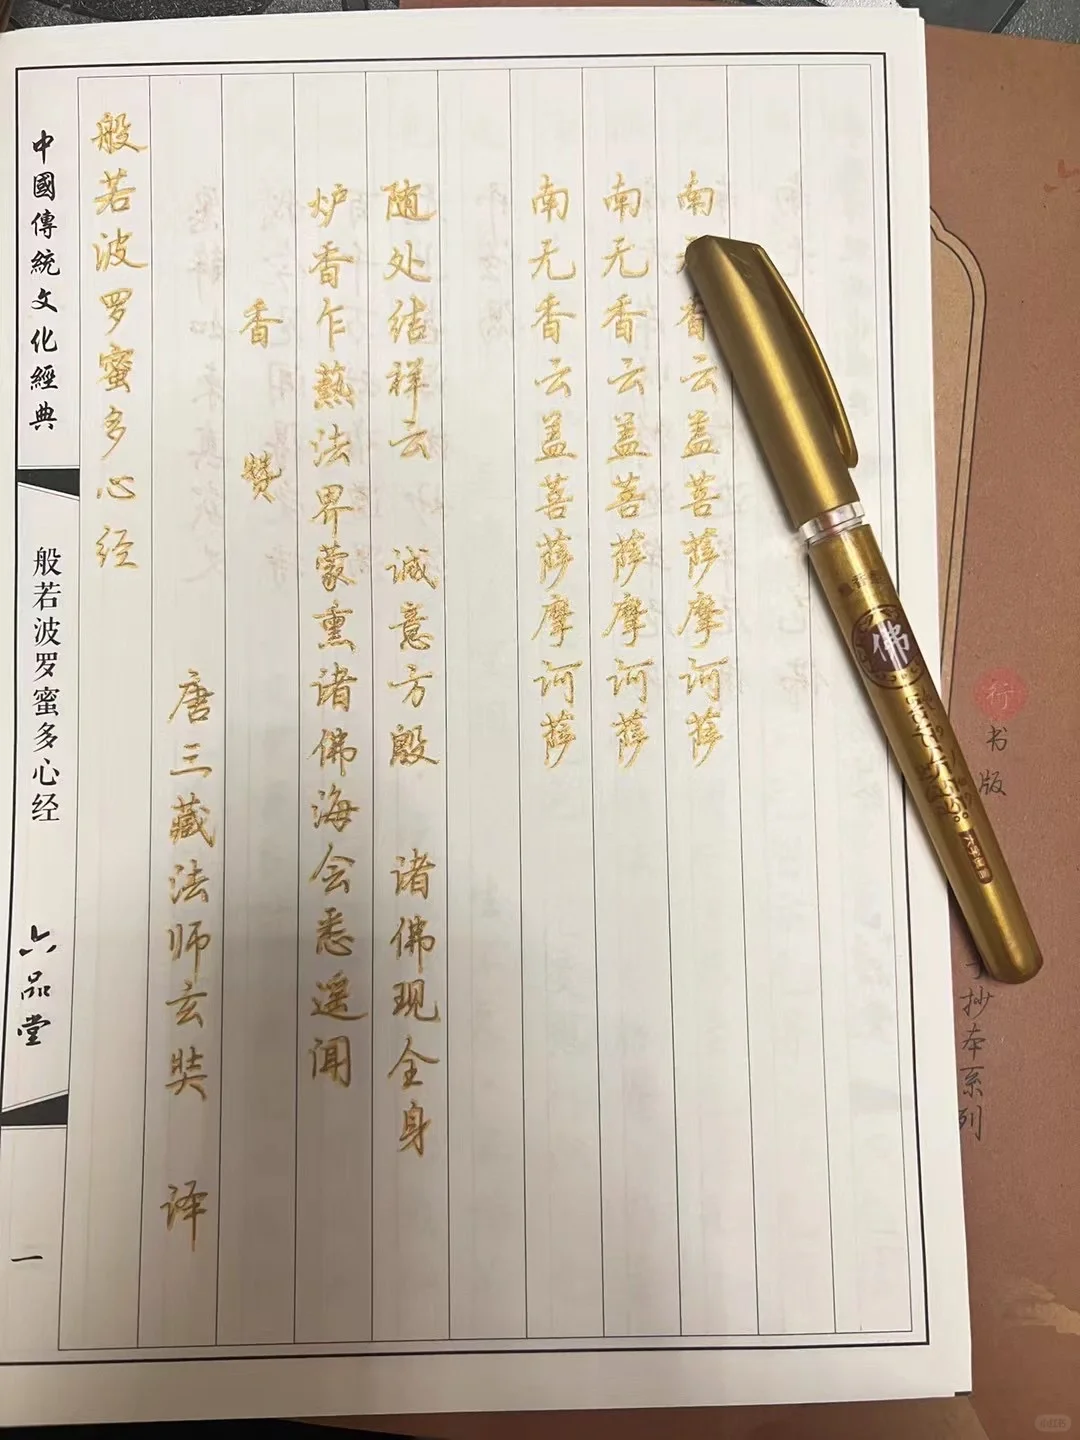 中國傳統文化經典
般若波罗蜜多心经
六品堂
一
般若波罗蜜多心经
唐三藏法师玄奘 译
香 赞
炉香乍爇法界蒙熏诸佛海会悉遥闻
随处结祥云 诚意方殷 诸佛现全身
南无香云盖菩萨摩诃萨
南无香云盖菩萨摩诃萨
南 香云盖菩萨摩诃萨
佛
行书版
手抄本系列